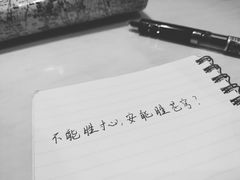 不能胜寸心，安能胜苍穹？